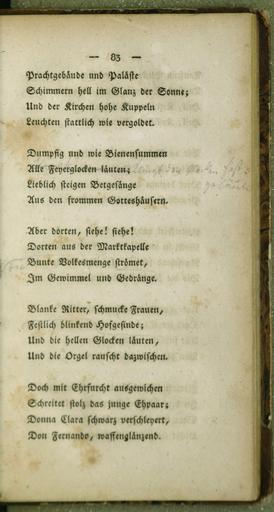 — 83 —
Prachtgebäude und Paläste
Schimmern hell im Glanz der Sonne;
Und der Kirchen hohe Kuppeln
Leuchten stattlich wie vergoldet.
Dumpfig und wie Bienensummen
Alle Feyerglocken läuten;
Lieblich steigen Betgesänge
Aus den frommen Gotteshäusern.
Aber dorten, siehe! siehe!
Dorten aus der Marktkapelle
Bunte Volkesmenge strömet,
Im Gewimmel und Gedränge.
Blanke Ritter, schmucke Frauen,
Festlich blinkend Hofgesinde;
Und die hellen Glocken läuten,
Und die Orgel rauscht dazwischen.
Doch mit Ehrfurcht ausgewichen
Schreitet stolz das junge Ehpaar;
Donna Clara schwarz verschleyert,
Don Fernando, waffenglänzend.